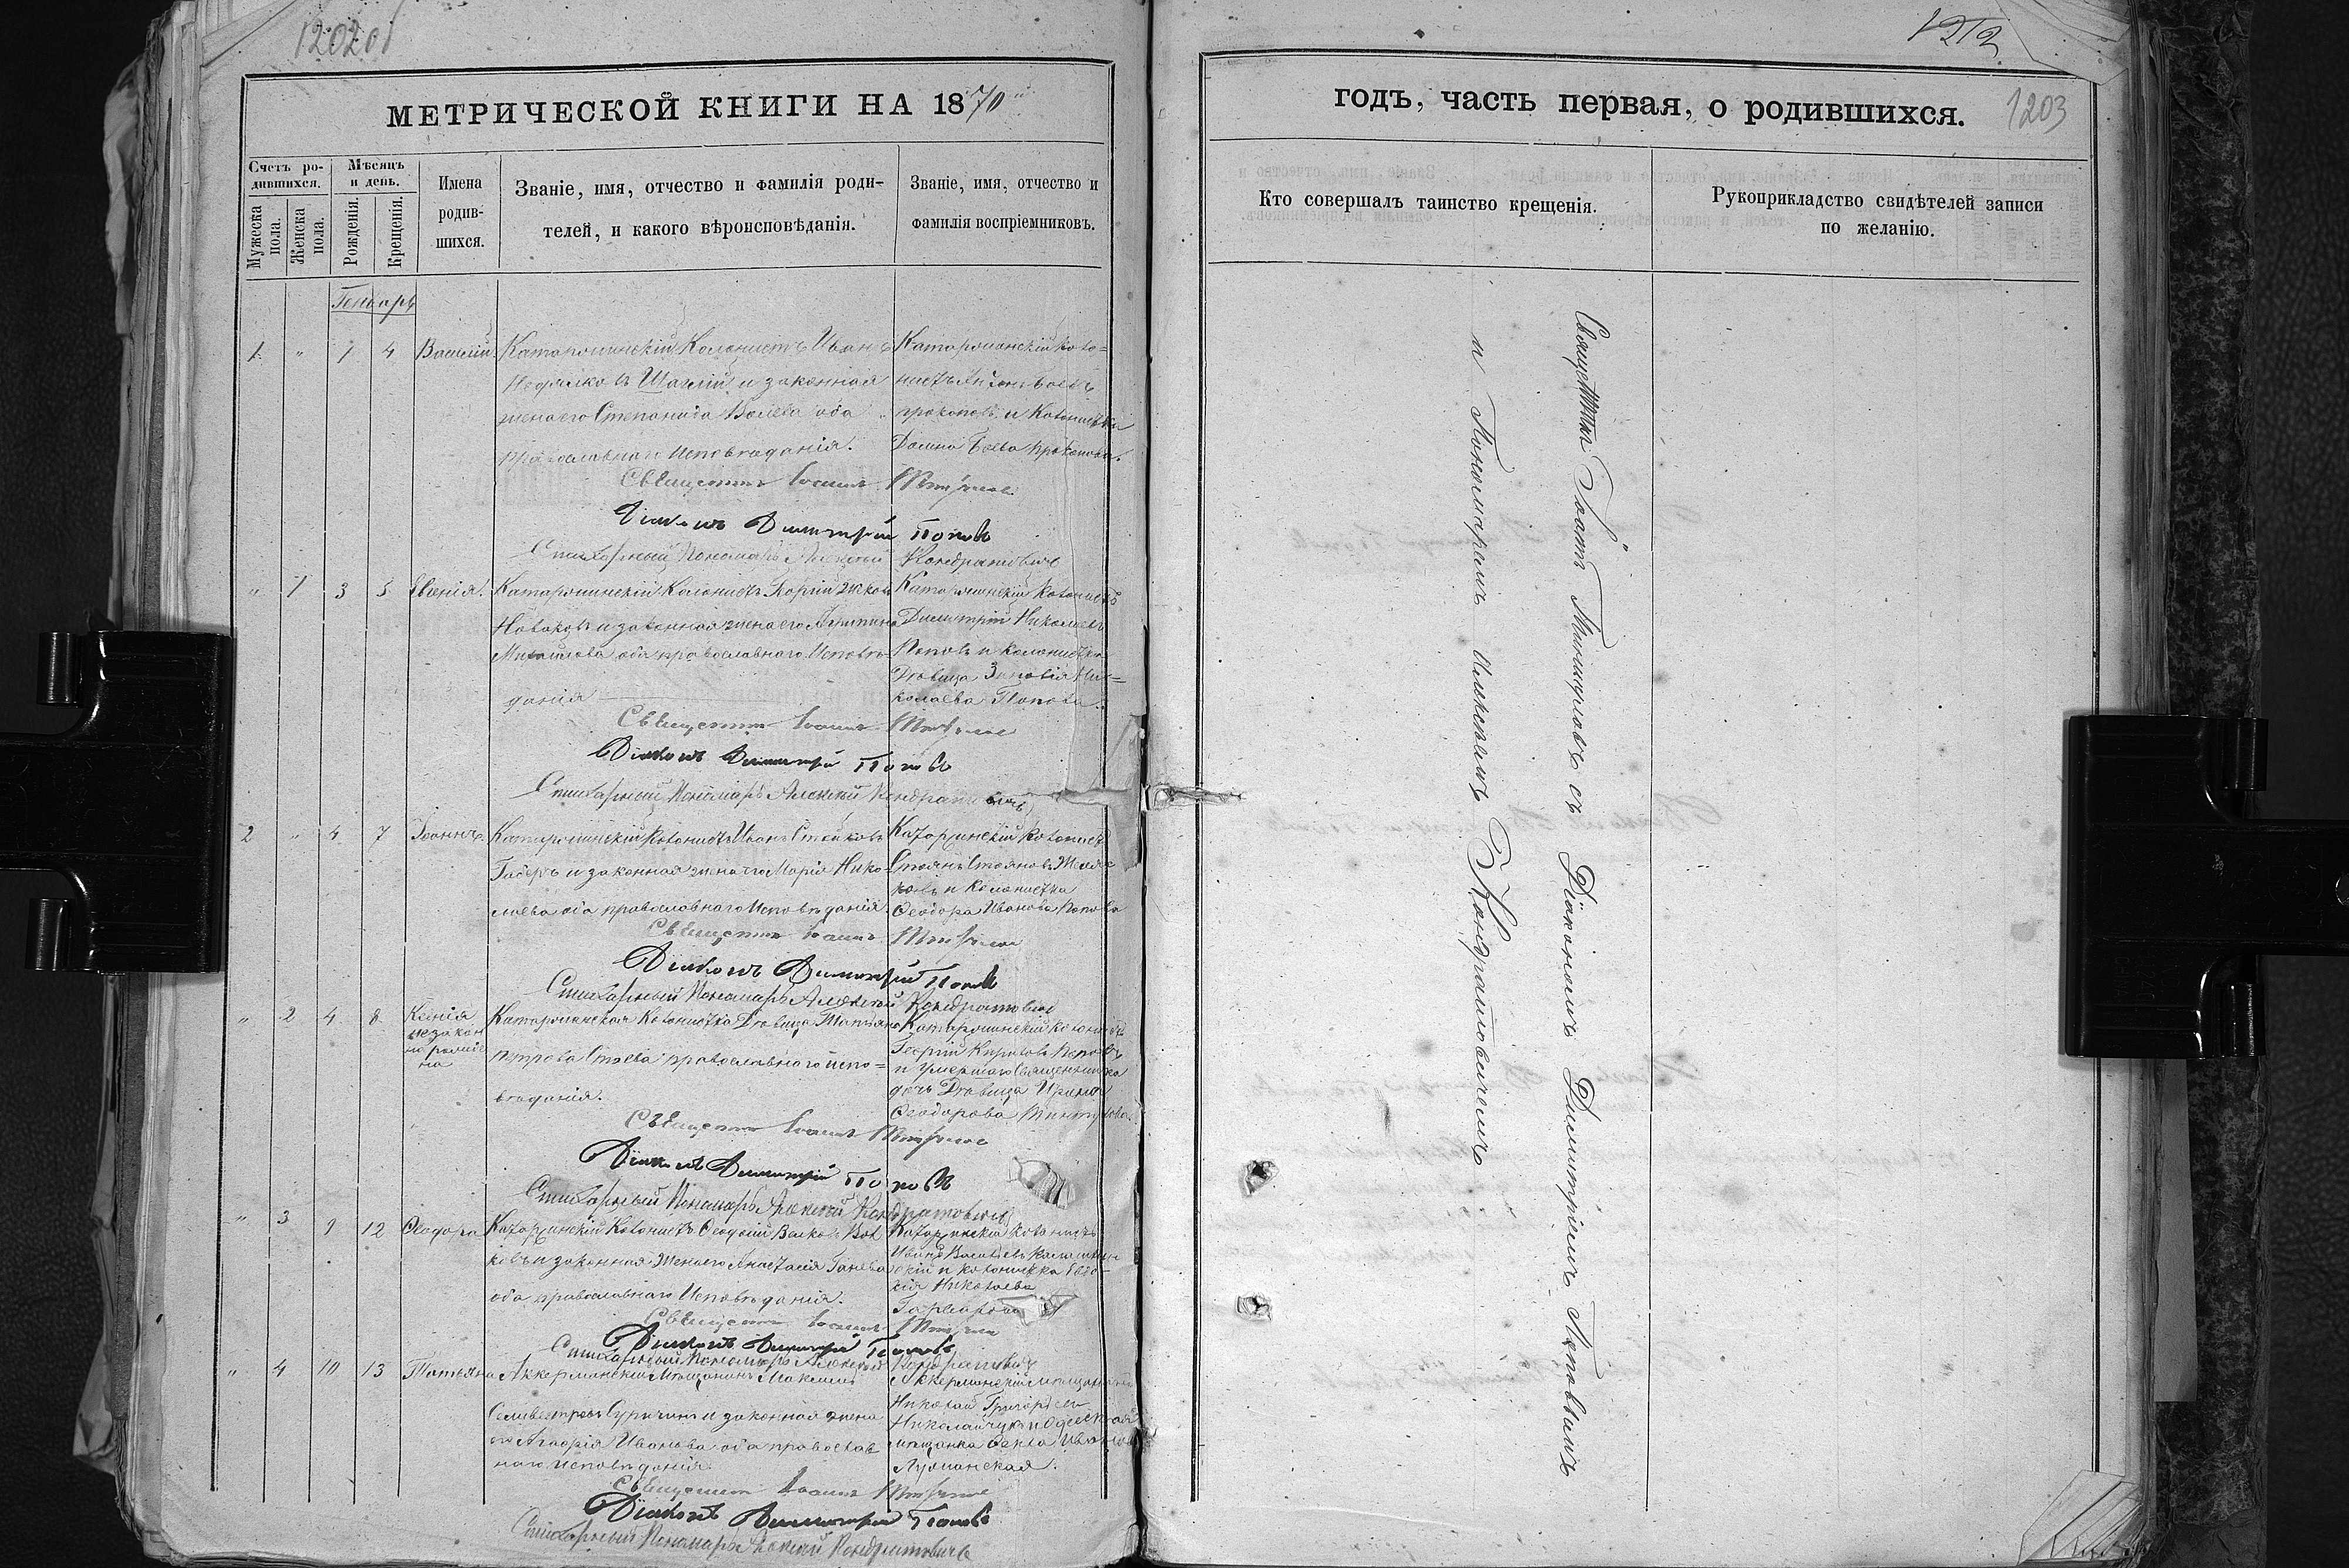 1202об
МЕТРИЧЕСКОЙ КНИГИ НА 1870й
Счетъ ро-
дившихся.
Мѣсяцъ
и день.
Мужеска
пола.
Женска
пола.
Рожденія.
Крещенія.
Имена
родив-
шихся.
Званіе, имя, отчество и фамилія роди-
телей, и какого вѣроисповѣданія.
Званіе, имя, отчество и
фамилія воспріемниковъ.
Генварь
1 " 1 4 Василій Катаржинскій Колонистъ Иванъ
и законная
жена его Степанида Волева оба
православнаго исповѣданія.
Катаржинскій коло-
нистъ
прокоповъ и Колонистка
Домна Боева прокопова.
Священникъ Іоаннъ
Діаконъ Димитрій Поповъ
Стихарный Пономарь Алексій Кондратовичъ
" 1 3 5 Евгенія. Катаржинскій Колонистъ
Новаковъ и законная жена его Агрипина
оба православнаго Исповѣ-
данія
Катаржинскій колонистъ
Димитрій Николаевъ
Поповъ и колонистка
Дѣвица Зиновія Ни-
колаева Попова.
Священникъ Іоаннъ
Діаконъ Димитрій Поповъ
Стихарный Пономарь Алексій Кондратовичъ
2 " 4 7 Іоаннъ Катаржинскій колонистъ Иванъ Стойковъ
и законная жена его Марія Нико-
лаева оба православнаго Исповѣданія.
Катаржинскій колонистъ
Стоянъ Стояновъ Желяс-
ковъ и Колонистка
Ѳеодора Иванова Попова
Священникъ Іоаннъ
Діаконъ Димитрій Поповъ
Стихарный Пономарь Алексій Кондратовичъ
" 2 4 8 Ксенія
незакон-
но рожде-
на
Катаржинская Колонистка Дѣвица Татьяна
Петрова Стоева православнаго испо-
вѣданія.
Катаржинскій колонистъ
Георгій Кириловъ Поповъ
и умершаго священника
дочь Дѣвица Ирина
Ѳеодорова
Священникъ Іоаннъ
Діаконъ Димитрій Поповъ
Стихарный Пономарь Алексій Кондратовичъ
" 3 9 12 Ѳеодора Катаржинскій Колонистъ Ѳеодосій Волковъ Вол-
ковъ и законная жена его Анастасія Ганева
оба православнаго Исповѣданія.
Катаржинскій колонистъ
Иванъ Васильевъ
и колонистка Евдо-
кія Николаева
Священникъ Іоаннъ
Діаконъ Димитрій Поповъ
Стихарный Пономарь Алексій Кондратовичъ
" 4 10 13 Татьяна Аккерманскій Мѣщанинъ Максимъ
Селивестровъ и законная жена
его Агафія Иванова оба православ-
наго исповѣданія.
Аккерманскій мѣщанинъ
Николай Григорьевъ
Николайчукъ и Одесская
мѣщанка Иванова
Священникъ Іоаннъ
Діаконъ Димитрій Поповъ
Стихарный Пономарь Алексій Кондратовичъ
1212
годъ, часть первая, о родившихся.
1203
Кто совершалъ таинство крещенія.
Рукоприкладство свидѣтелей записи
по желанію.
Священникъ Іоаннъ съ Діакономъ Димитріемъ Поповымъ
и Пономаремъ Алексіемъ Кондратовичемъ